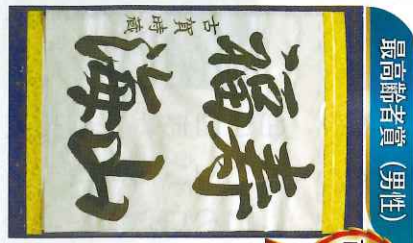 最高齢者賞（男性）
寿山
福海
古賀時蔵